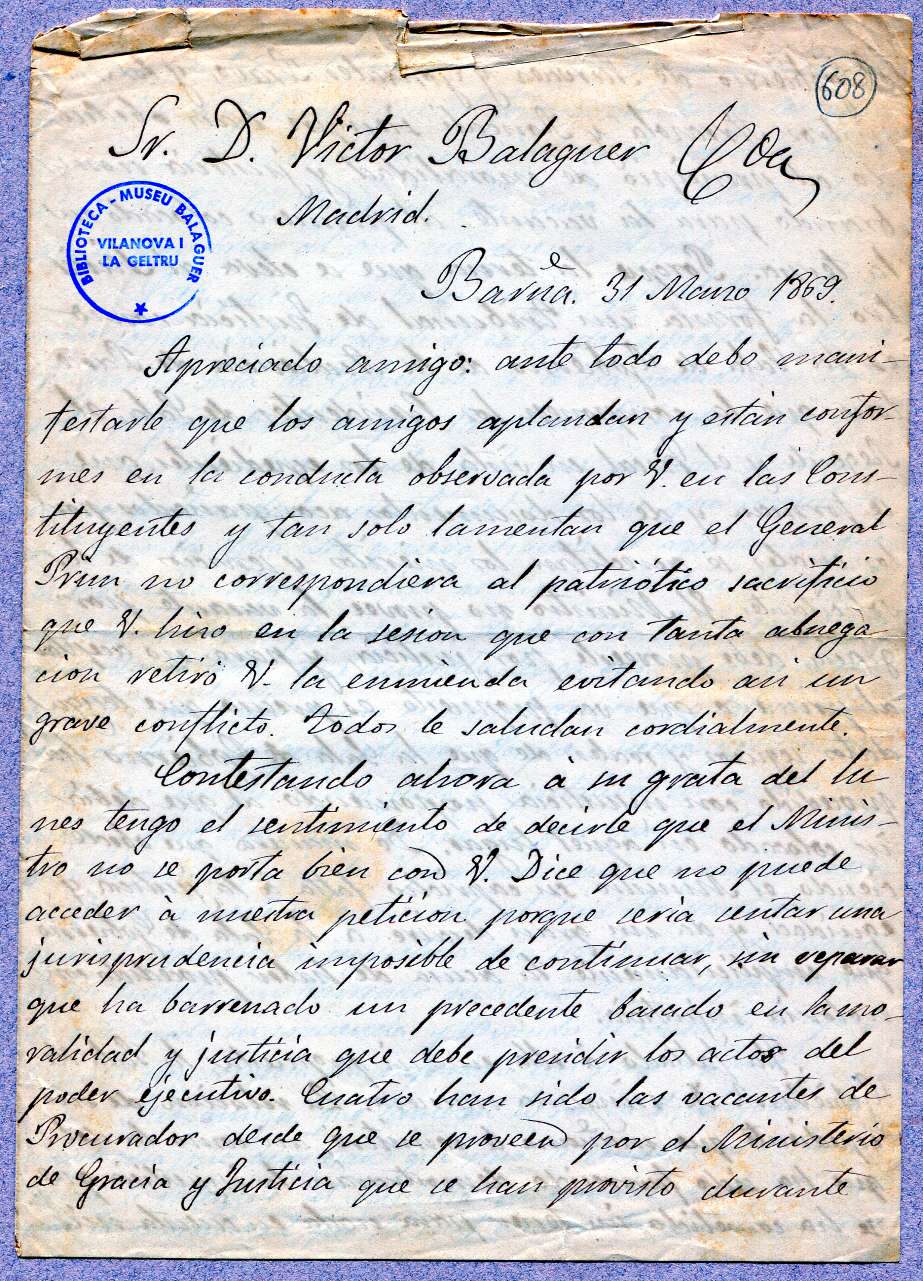 608
Sr. D. Victor Balaguer
Madrid.
BIBLIOTECA - MUSEU BALAGUER
VILANOVA I
LA GELTRU
Barña. 31 Marzo 1869.
Apreciado amigo: ante todo debo mani-
festarle que los amigos aplaudan y están confor-
mes en la conducta observada por V. en las Cons-
tituyentes y tan solo lamentan que el General
Prim no correspondiera al patriótico sacrificio
que V. hizo en la sesion que con tanta abnega
cion retiró V. la enmienda evitando asi un
grave conflicto. Todos le saludan cordialmente.
Contestando ahora à su grata del lu
nes tengo el sentimiento de decirle que el Minis-
tro no se porta bien con V. Dice que no puede
acceder à nuestra peticion porque seria sentar una
jurisprudencia imposible de continuar, sin reparar
que ha barrenado un precedente basado en la mo-
ralidad y justicia que debe presidir los actos del
poder ejecutivo. Cuatro han sido las vacantes de
Procurador desde que se proveen por el Ministerio
de Gracia y Justicia que se han provisto durante